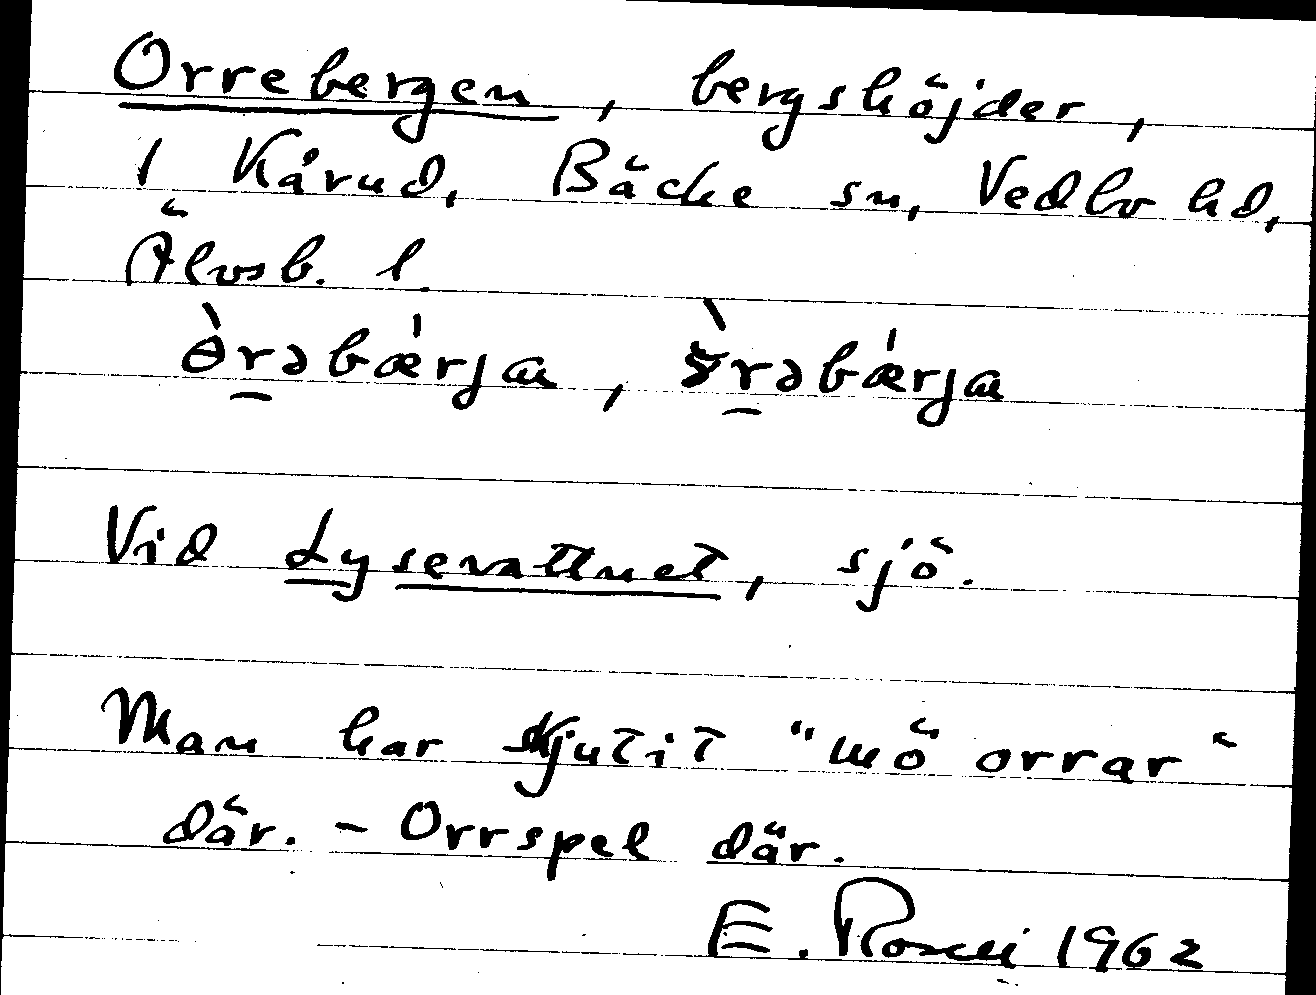 Orrebergen, bergshöjder,
i Kårud, Bäcke sn, Vedbo hd,
Älvsb. l.
Vid Lysevattnet, sjö.
Man har skjutit "mö orrar"
där. - Orrspel där.
E. 1962